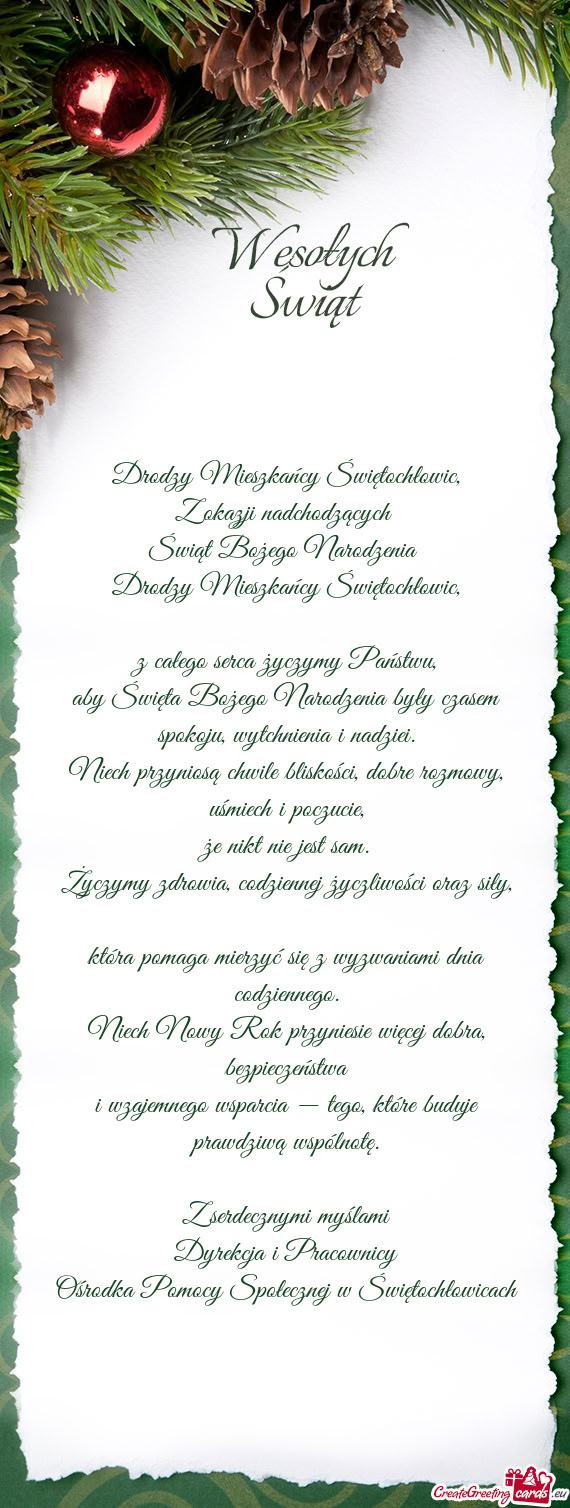 Wesołych
Świąt
Drodzy Mieszkańcy Świętochłowic,
Z okazji nadchodzących
Świąt Bożego Narodzenia
Drodzy Mieszkańcy Świętochłowic,
z całego serca życzymy Państwu,
aby Święta Bożego Narodzenia były czasem
spokoju, wytchnienia i nadziei.
Niech przyniosą chwile bliskości, dobre rozmowy,
uśmiech i poczucie,
że nikt nie jest sam.
Życzymy zdrowia, codziennej życzliwości oraz siły,
która pomaga mierzyć się z wyzwaniami dnia
codziennego.
Niech Nowy Rok przyniesie więcej dobra,
bezpieczeństwa
i wzajemnego wsparcia — tego, które buduje
prawdziwą wspólnotę.
Z serdecznymi myślami
Dyrekcja i Pracownicy
Ośrodka Pomocy Społecznej w Świętochłowicach
CreateGreetingcards.eu